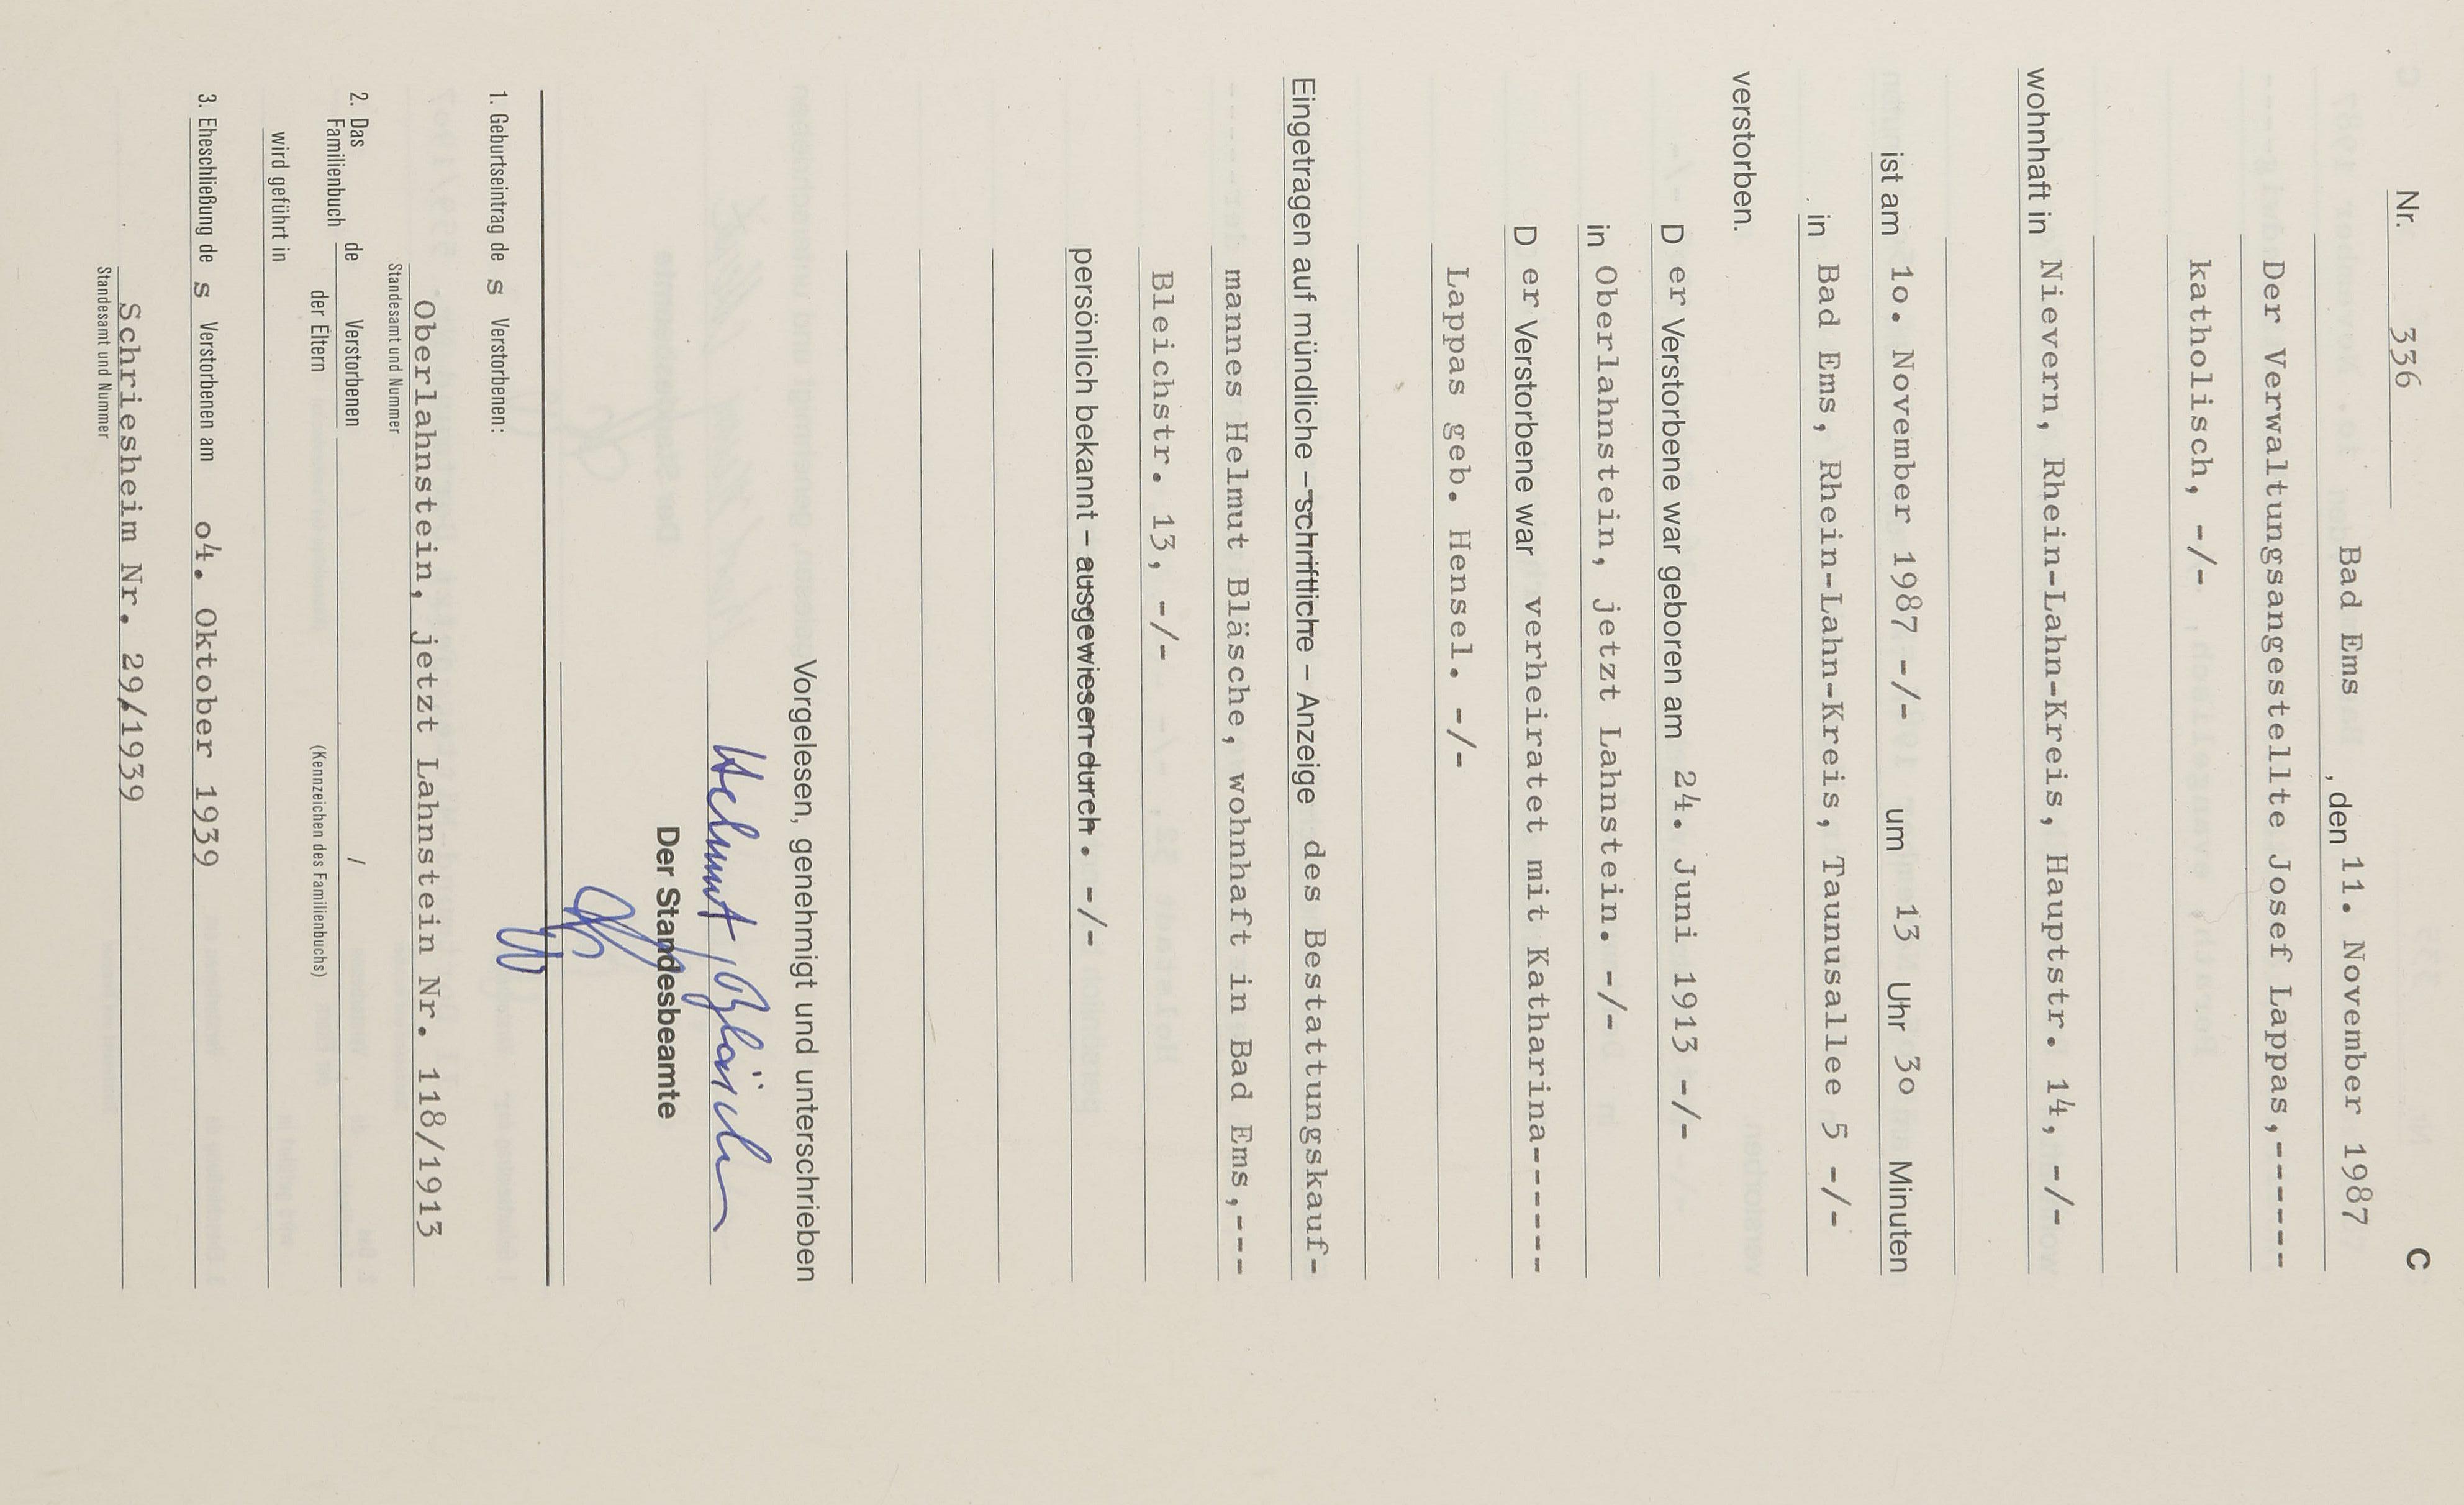 C
Nr. 336
Bad Ems, den 11. November 1987
Der Verwaltungsangestellte Josef Lappas,------
katholisch, -/-
wohnhaft in Nievern, Rhein-Lahn-Kreis, Hauptstr. 14, -/-
ist am 1o. November 1987 -/- um 13 Uhr 3o Minuten
in Bad Ems, Rhein-Lahn-Kreis, Taunusallee 5 -/-
verstorben.
D er Verstorbene war geboren am 24. Juni 1913 -/-
in Oberlahnstein, jetzt Lahnstein. -/-
D er Verstorbene war verheiratet mit Katharina------
Lappas geb. Hensel. -/-
Eingetragen auf mündliche – schriftliche – Anzeige des Bestattungskauf-
mannes Helmut Bläsche, wohnhaft in Bad Ems,---
Bleichstr. 13, -/-
persönlich bekannt – ausgewiesen durch. -/-
Vorgelesen, genehmigt und unterschrieben
Helmut Bläsche
Der Standesbeamte
1. Geburtseintrag de s Verstorbenen:
Oberlahnstein, jetzt Lahnstein Nr. 118/1913
Standesamt und Nummer
2. Das Familienbuch de Verstorbenen /
der Eltern (Kennzeichen des Familienbuchs)
wird geführt in
3. Eheschließung de s Verstorbenen am o4. Oktober 1939
Schriesheim Nr. 29/1939
Standesamt und Nummer